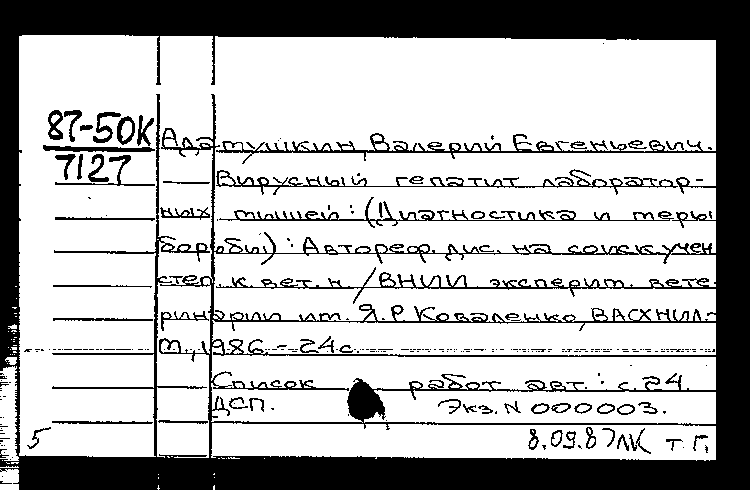 87-50К
7127
Адатушкин, Валерий Евгеньевич.
Вирусный гепатит лаборатор-
ных мышей : (Диагностика и меры
борьбы) : Автореф. дис. на соиск. учен
степ. к. вет. н. / ВНИИ эксперит. вете-
ринарии им. Я.Р. Коваленко, ВАСХНИЛ.-
М., 1986. - 24 с.
Список работ авт. : с. 24.
ДСП. Экз. N 000003.
5 8.09.87 ЛК т Г.